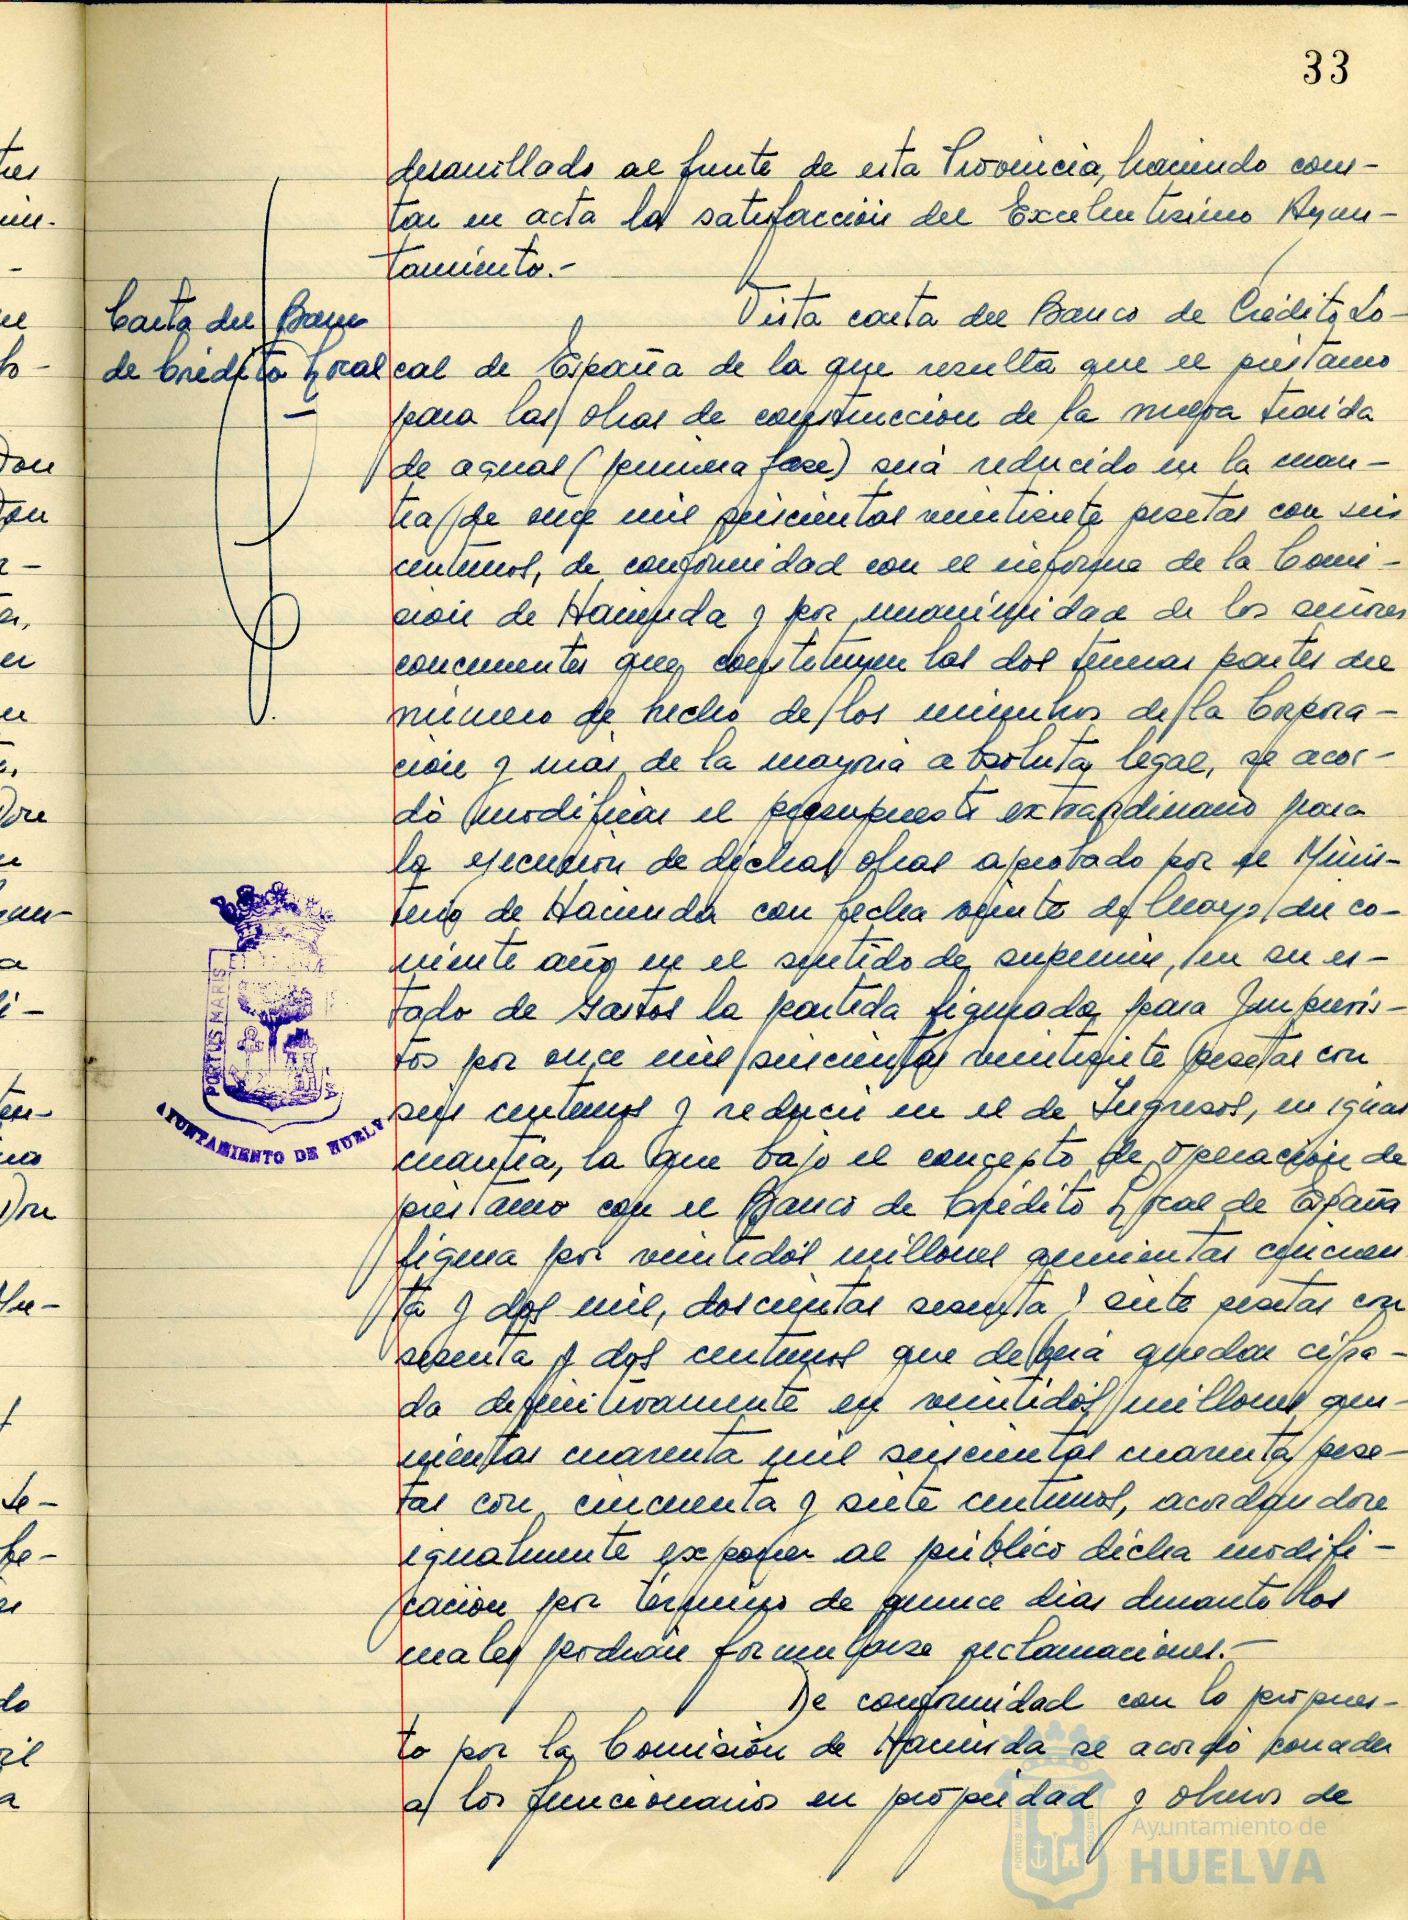 33
desarrollado al frente de esta Provincia, haciendo cons-
tar en acta la satisfacción del Excelentísimo Ayun-
tamiento.-
Carta del Banco
de Crédito Local
Vista carta del Banco de Crédito Lo-
cal de España de la que resulta que el préstamo
para las obras de construcción de la nueva traida
de aguas (primera fase) será reducido en la cuan-
tia de once mil seiscientas veintisiete pesetas con seis
centimos, de conformidad con el informe de la Comi-
sión de Hacienda y por unanimidad de los señores
concurrentes que constituyen las dos terceras partes del
número de hecho de los miembros de la Corpora-
ción y más de la mayoria absoluta legal, se acor-
dó modificar el presupuesto extraordinario para
la ejecución de dichas obras aprobado por el Minis-
terio de Hacienda con fecha veinte de Mayo del co-
rriente año en el sentido de suprimir, en su es-
tado de Gastos la partida figurada para Imprevis-
tos por once mil seiscientas veintisiete pesetas con
seis centimos y reducir en el de Ingresos, en igual
cuantia, la que bajo el concepto de operación de
préstamo con el Banco de Crédito Local de España
figura por veintidós millones quinientas cincuen
ta y dos mil, doscientas sesenta y siete pesetas con
sesenta y dos centimos que deberá quedar cifra-
da definitivamente en veintidós millones qui-
nientas cuarenta mil seiscientas cuarenta pese-
tas con cincuenta y siete centimos, acordandose
igualmente exponer al público dicha modifi-
cación por término de quince dias durante los
cuales podrán formularse reclamaciones.-
De conformidad con lo propues-
to por la Comisión de Hacienda se acordó conceder
a los funcionarios en propiedad y obreros de
PORTUS MARIS
AYUNTAMIENTO DE HUELVA
Ayuntamiento de
HUELVA